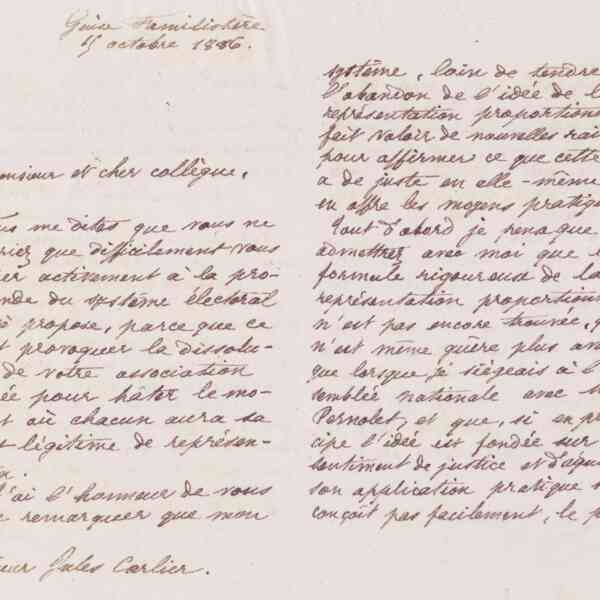 Guise Familistère
15 octobre 1886.
onsieur et cher collègue,
us me dites que vous ne
riez que difficilement vous
ier activement à la pro-
nde du système électoral
propose, parce que ce
t provoquer la dissolu-
de votre association
ée pour hâter le mo-
t où chacun aura sa
t légitime de représen-
n.
J'ai l'honneur de vous
e remarquer que mon
eur Jules Carlier.
système, loin de tendre
l'abandon de l'idée de l
représentation proportionn
fait valoir de nouvelles rai
pour affirmer ce que cette
a de juste en elle-même
en offre les moyens pratiqu
Tout d'abord je pense que
admettrez avec moi que
formule rigoureuse de la
représentation proportionn
n'est pas encore trouvée, q
n'est même guère plus av
que lorsque je siégeais à l'
semblée nationale avec M
Pernolet, et que, si en pr
cipe l'idée est fondée sur
sentiment de justice et d'équ
son application pratique
conçoit pas facilement, le p